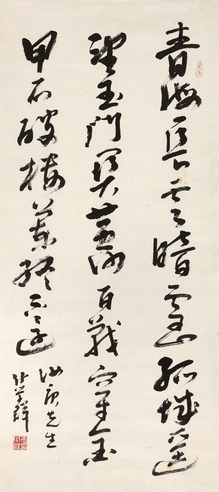 青海長雲暗雪山孤城遙
望玉門關黃沙百戰穿金
甲不破樓蘭終不還
先生